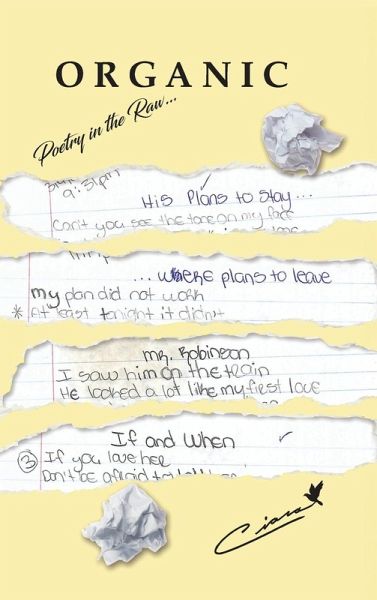 ORGANIC
Poetry in the Raw...
9:31pm
His Plans to Stay...
Can't you see the tone on my face
...where plans to leave
my plan did not work
* At least tonight it didn't
mr. Robinson
I saw him on the train
He looked a lot like my first love
If and When
③ If you love her
Don't be afraid to
Ciara